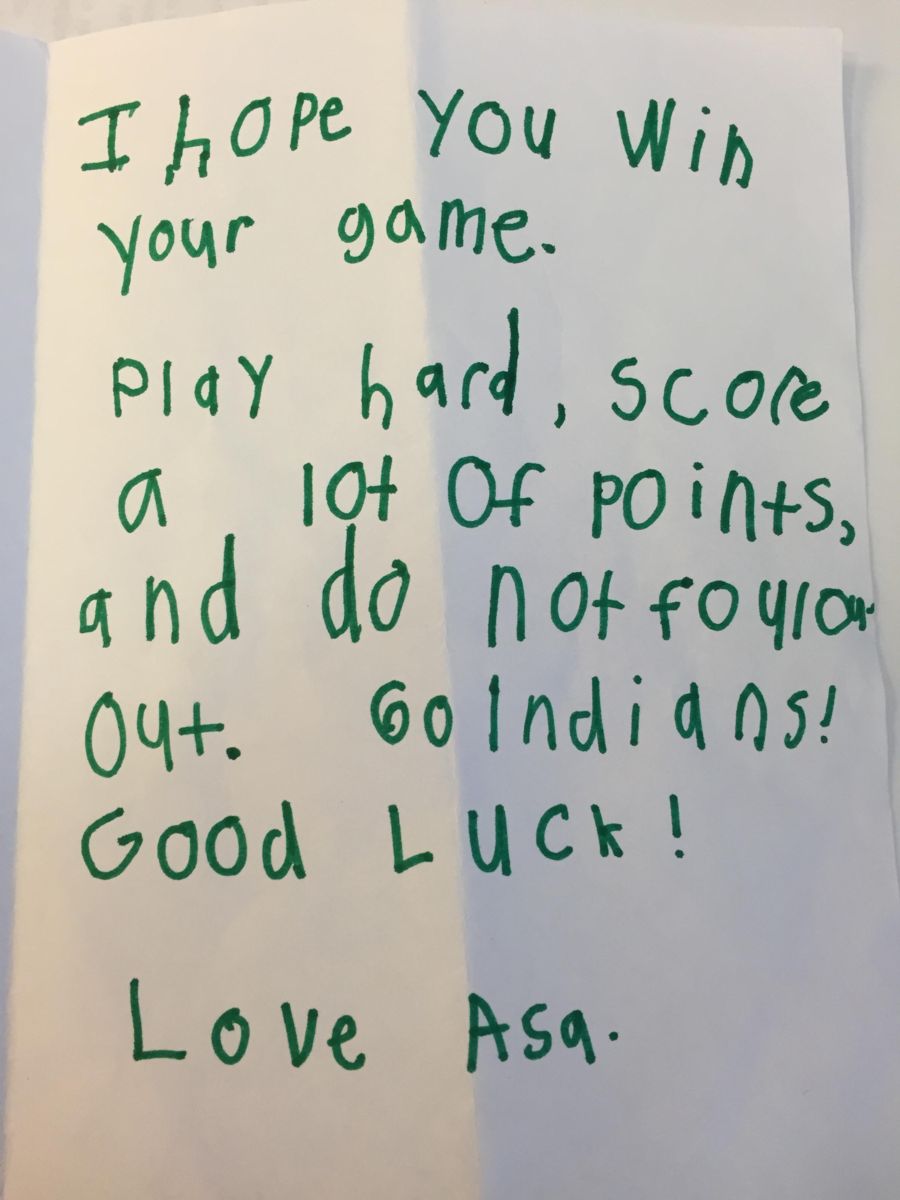 I hope you win
your game.
Play hard, score
a lot of points,
and do not
out. Go Indians!
Good Luck!
Love Asa.